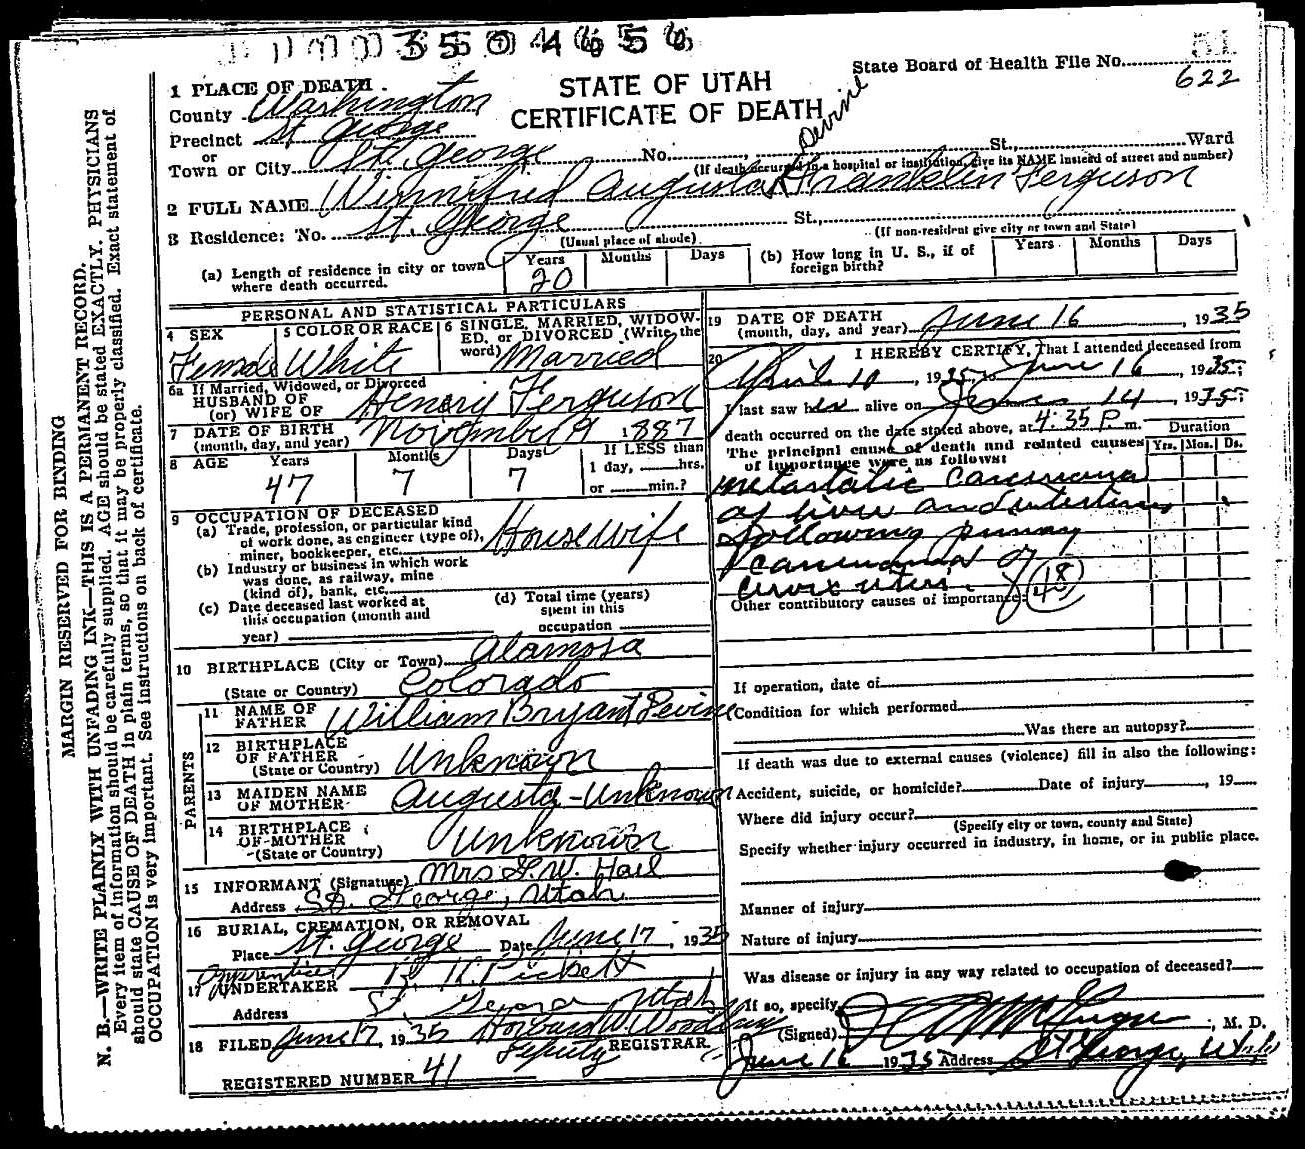 3504656
51
State Board of Health File No. 622
STATE OF UTAH
CERTIFICATE OF DEATH
1 PLACE OF DEATH
County Washington
Precinct St George
or
Town or City St. George No. St., Ward
(If death occurred in a hospital or institution, give its NAME instead of street and number)
Devine
2 FULL NAME Winnifred Augusta Franklin Ferguson
3 Residence: No. St. George St.,
(Usual place of abode) (If non-resident give city or town and State)
(a) Length of residence in city or town where death occurred. Years 20 Months Days
(b) How long in U. S., if of foreign birth? Years Months Days
MARGIN RESERVED FOR BINDING
N. B.—WRITE PLAINLY WITH UNFADING INK—THIS IS A PERMANENT RECORD.
Every item of information should be carefully supplied. AGE should be stated EXACTLY. PHYSICIANS
should state CAUSE OF DEATH in plain terms, so that it may be properly classified. Exact statement of
OCCUPATION is very important. See instructions on back of certificate.
PERSONAL AND STATISTICAL PARTICULARS
4 SEX Female
5 COLOR OR RACE White
6 SINGLE, MARRIED, WIDOWED, or DIVORCED (Write the word) Married
6a If Married, Widowed, or Divorced
HUSBAND OF
(or) WIFE OF Henry Ferguson
7 DATE OF BIRTH
(month, day, and year) November 9 1887
8 AGE Years 47 Months 7 Days 7 If LESS than
1 day, hrs.
or min.?
9 OCCUPATION OF DECEASED
(a) Trade, profession, or particular kind
of work done, as engineer (type of),
miner, bookkeeper, etc. Housewife
(b) Industry or business in which work
was done, as railway, mine
(kind of), bank, etc.
(c) Date deceased last worked at
this occupation (month and
year)
(d) Total time (years)
spent in this
occupation
10 BIRTHPLACE (City or Town) Alamosa
(State or Country) Colorado
PARENTS
11 NAME OF
FATHER William Bryant Devine
12 BIRTHPLACE
OF FATHER
(State or Country) Unknown
13 MAIDEN NAME
OF MOTHER Augusta - Unknown
14 BIRTHPLACE
OF MOTHER
(State or Country) Unknown
15 INFORMANT (Signature) Mrs G. W. Hail
Address St. George, Utah
16 BURIAL, CREMATION, OR REMOVAL
Place St. George Date June 17, 1935
Apprentice
17 UNDERTAKER Pickett
Address St. George Utah
18 FILED June 17, 1935 Howard W. Woodbury
Deputy REGISTRAR.
REGISTERED NUMBER 41
19 DATE OF DEATH
(month, day, and year) June 16, 1935
20 I HEREBY CERTIFY, That I attended deceased from
April 10, 1935, to June 16, 1935;
I last saw her alive on June 14, 1935;
death occurred on the date stated above, at 4:35 P. m.
The principal cause of death and related causes
of importance were as follows:
Duration
Yrs. Mos. Ds.
metastatic carcinoma
of liver and intestines
following primary
carcinoma of
cervix uteri.
48
Other contributory causes of importance:
If operation, date of
Condition for which performed
Was there an autopsy?
If death was due to external causes (violence) fill in also the following:
Accident, suicide, or homicide? Date of injury, 19
Where did injury occur?
(Specify city or town, county and State)
Specify whether injury occurred in industry, in home, or in public place.
Manner of injury
Nature of injury
Was disease or injury in any way related to occupation of deceased?
If so, specify
(Signed) M. D.
June 16 1935 Address St George, Utah